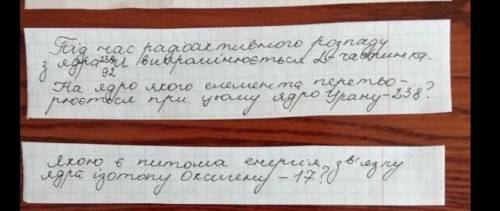 Під час радіоактивного розпаду
з ядра ²³⁸₉₂U випромінюється α-частинка.
На ядро якого елемента перетво-
рюється при цьому ядро Урану-238?
Якою є питома енергія зв'язку
ядра ізотопу Оксигену-17?